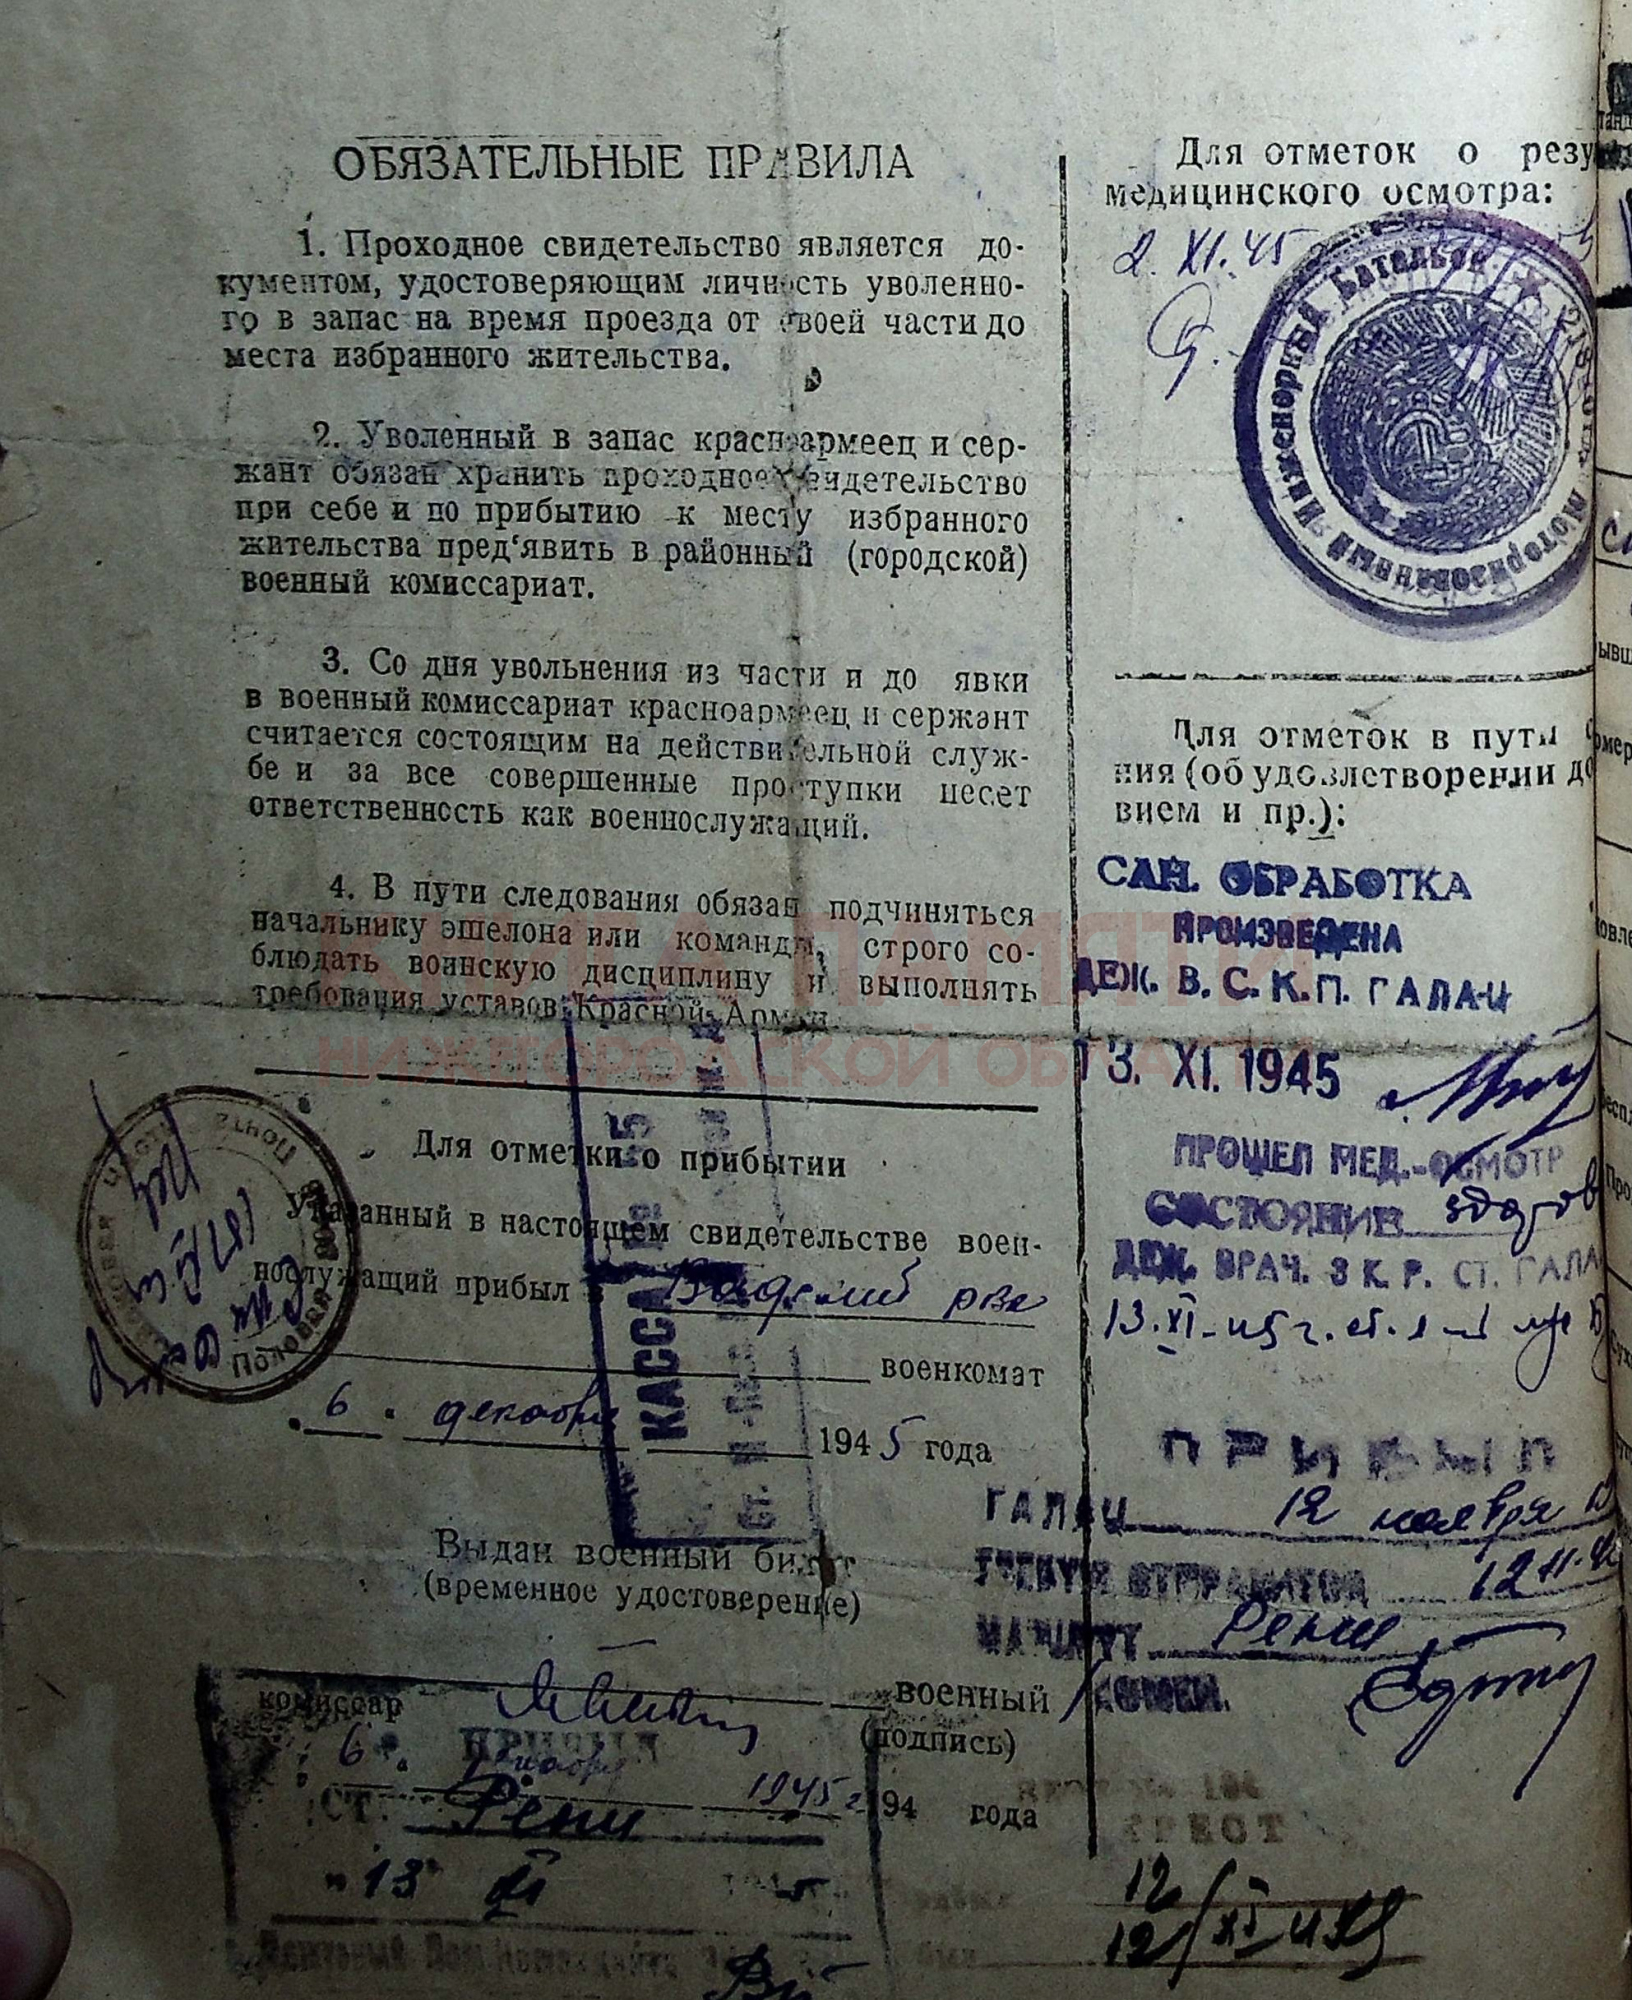 ОБЯЗАТЕЛЬНЫЕ ПРАВИЛА
1. Проходное свидетельство является до-
кументом, удостоверяющим личность уволенно-
го в запас на время проезда от своей части до
места избранного жительства.
2. Уволенный в запас красноармеец и сер-
жант обязан хранить проходное свидетельство
при себе и по прибытию к месту избранного
жительства пред‘явить в районный (городской)
военный комиссариат.
3. Со дня увольнения из части и до явки
в военный комиссариат красноармеец и сержант
считается состоящим на действительной служ-
бе и за все совершенные проступки несет
ответственность как военнослужащий.
4. В пути следования обязан подчиняться
начальнику эшелона или команды, строго со-
блюдать воинскую дисциплину и выполнять
требования уставов Красной Армии.
НИЖЕГОРОДСКОЙ ОБЛАСТИ
Для отметки о прибытии
Указанный в настоящем свидетельстве воен-
нослужащий прибыл в Вадский рвк
военкомат
6 декабря 1945 года
КАССА
Почта
Половая
Выдан военный билет
(временное удостоверение)
военный
комиссар
(подпись)
6 декабря 1945 г 194 года
ПРИБЫЛ
СТ. Рени
"13" XI
Для отметок о резу
медицинского осмотра:
2. XI. 45
Моторизованный Инженерный Батальон
Для отметок в пути с
ния (об удовлетворении до
вием и пр.):
САН. ОБРАБОТКА
ПРОИЗВЕДЕНА
ДЕЖ. В. С. К. П. ГАЛАЦ
13. XI. 1945
ПРОШЕЛ МЕД.-ОСМОТР
СОСТОЯНИЕ здоров
ДЕЖ. ВРАЧ. З К. Р. СТ. ГАЛА
13. XI-45 г.
ПРИБЫЛ
ГАЛАЦ 12 ноября
12 11.45
МАРШРУТ Рени
КОМЕН.
12/XI